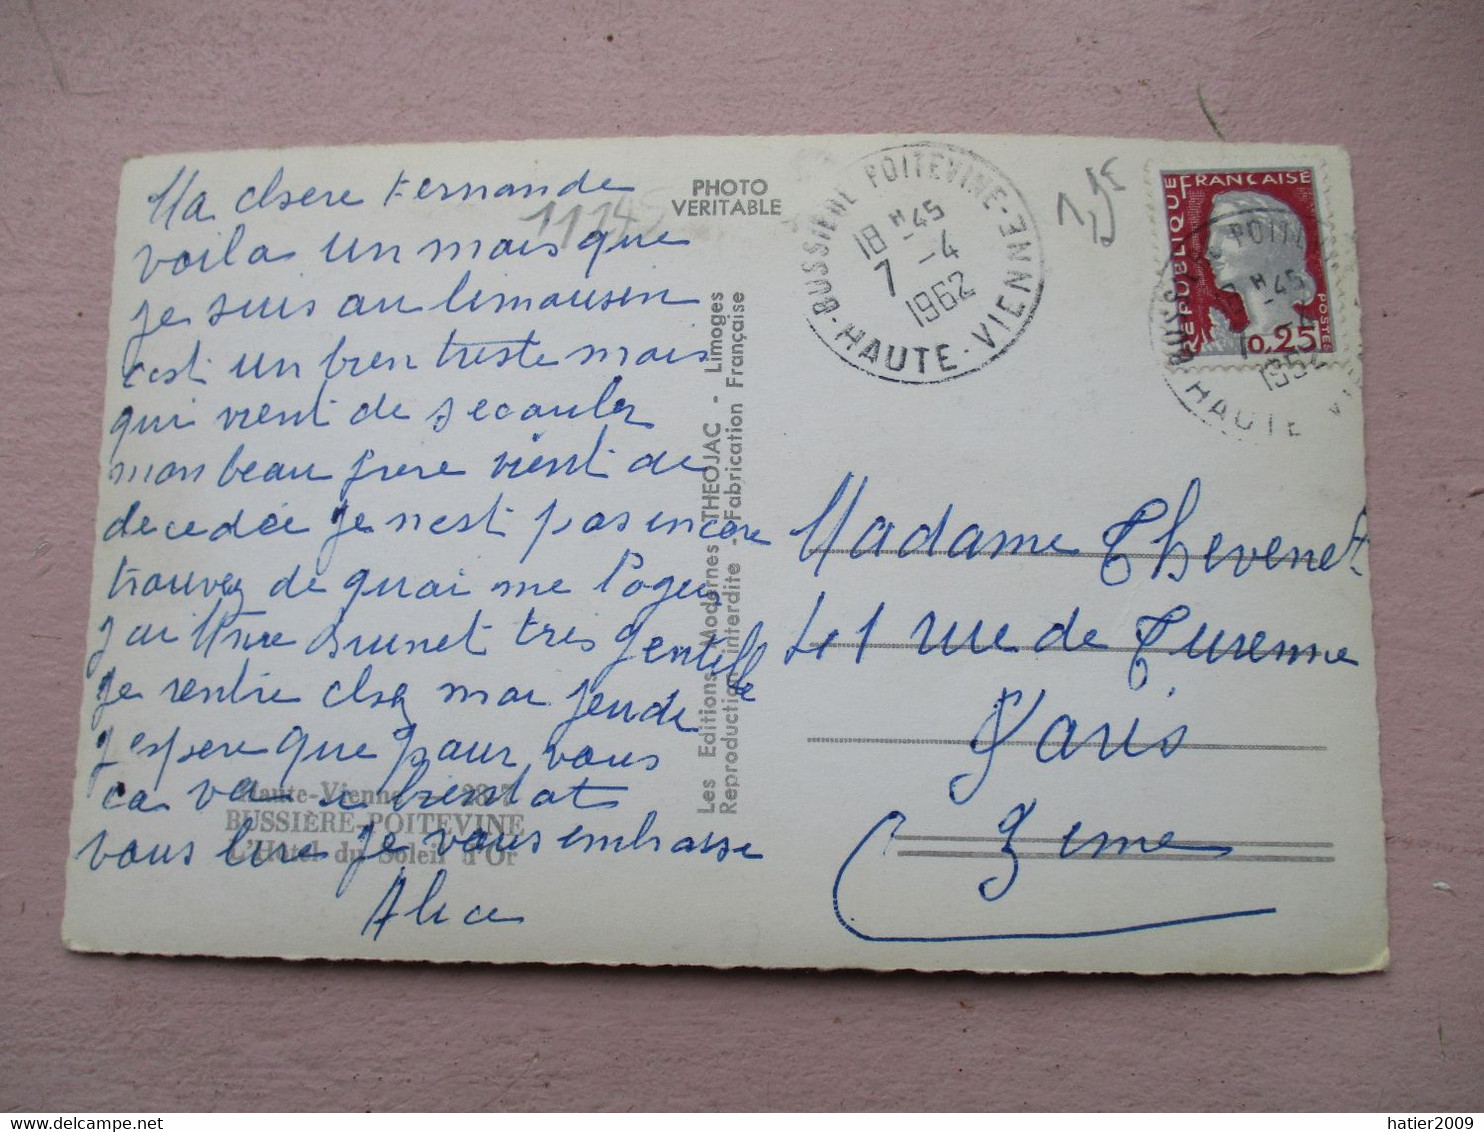 Ma chere Fernande
voila un mois que
je suis au limousin
c'est un bien triste mois
qui vient de secouler
mon beau frere vient de
decedée je n'est pas encore
trouvez de quoi me loger
j'ai Mme Brunet tres gentille
je rentre chez moi jeudi
j'espere que pour vous
ca va a bientot
vous lire je vous embrasse
Alice
Haute-Vienne - 28.7
BUSSIÈRE-POITEVINE
L'Hôtel du Soleil d'Or
11245
PHOTO
VERITABLE
Les Editions Modernes THEOJAC - Limoges
Reproduction interdite - Fabrication Française
BUSSIÈRE POITEVINE
18 H 45
7 - 4
1962
HAUTE-VIENNE
RÉPUBLIQUE FRANÇAISE
POSTES
0,25
Madame Thevenet
41 rue de Turenne
Paris
3 eme
hatier2009